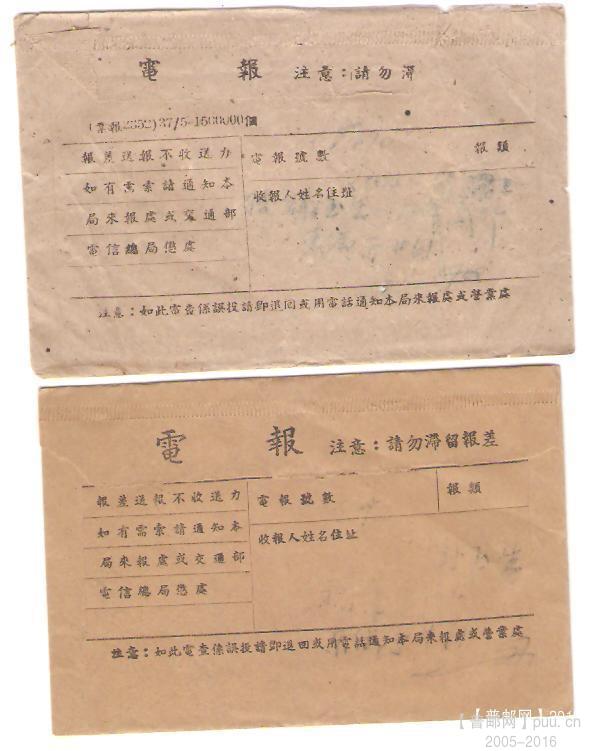 電報 注意：請勿滯
(業報2352)37/5-1500000個
報差送報不收送力
如有需索請通知本
局來報處或交通部
電信總局懲處
電報號數
報類
收報人姓名住址
注意：如此電查係誤投請即退回或用電話通知本局來報處或營業處
電報 注意：請勿滯留報差
報差送報不收送力
如有需索請通知本
局來報處或交通部
電信總局懲處
電報號數
報類
收報人姓名住址
注意：如此電查係誤投請即退回或用電話通知本局來報處或營業處
【普邮网】puu.cn
2005-2016